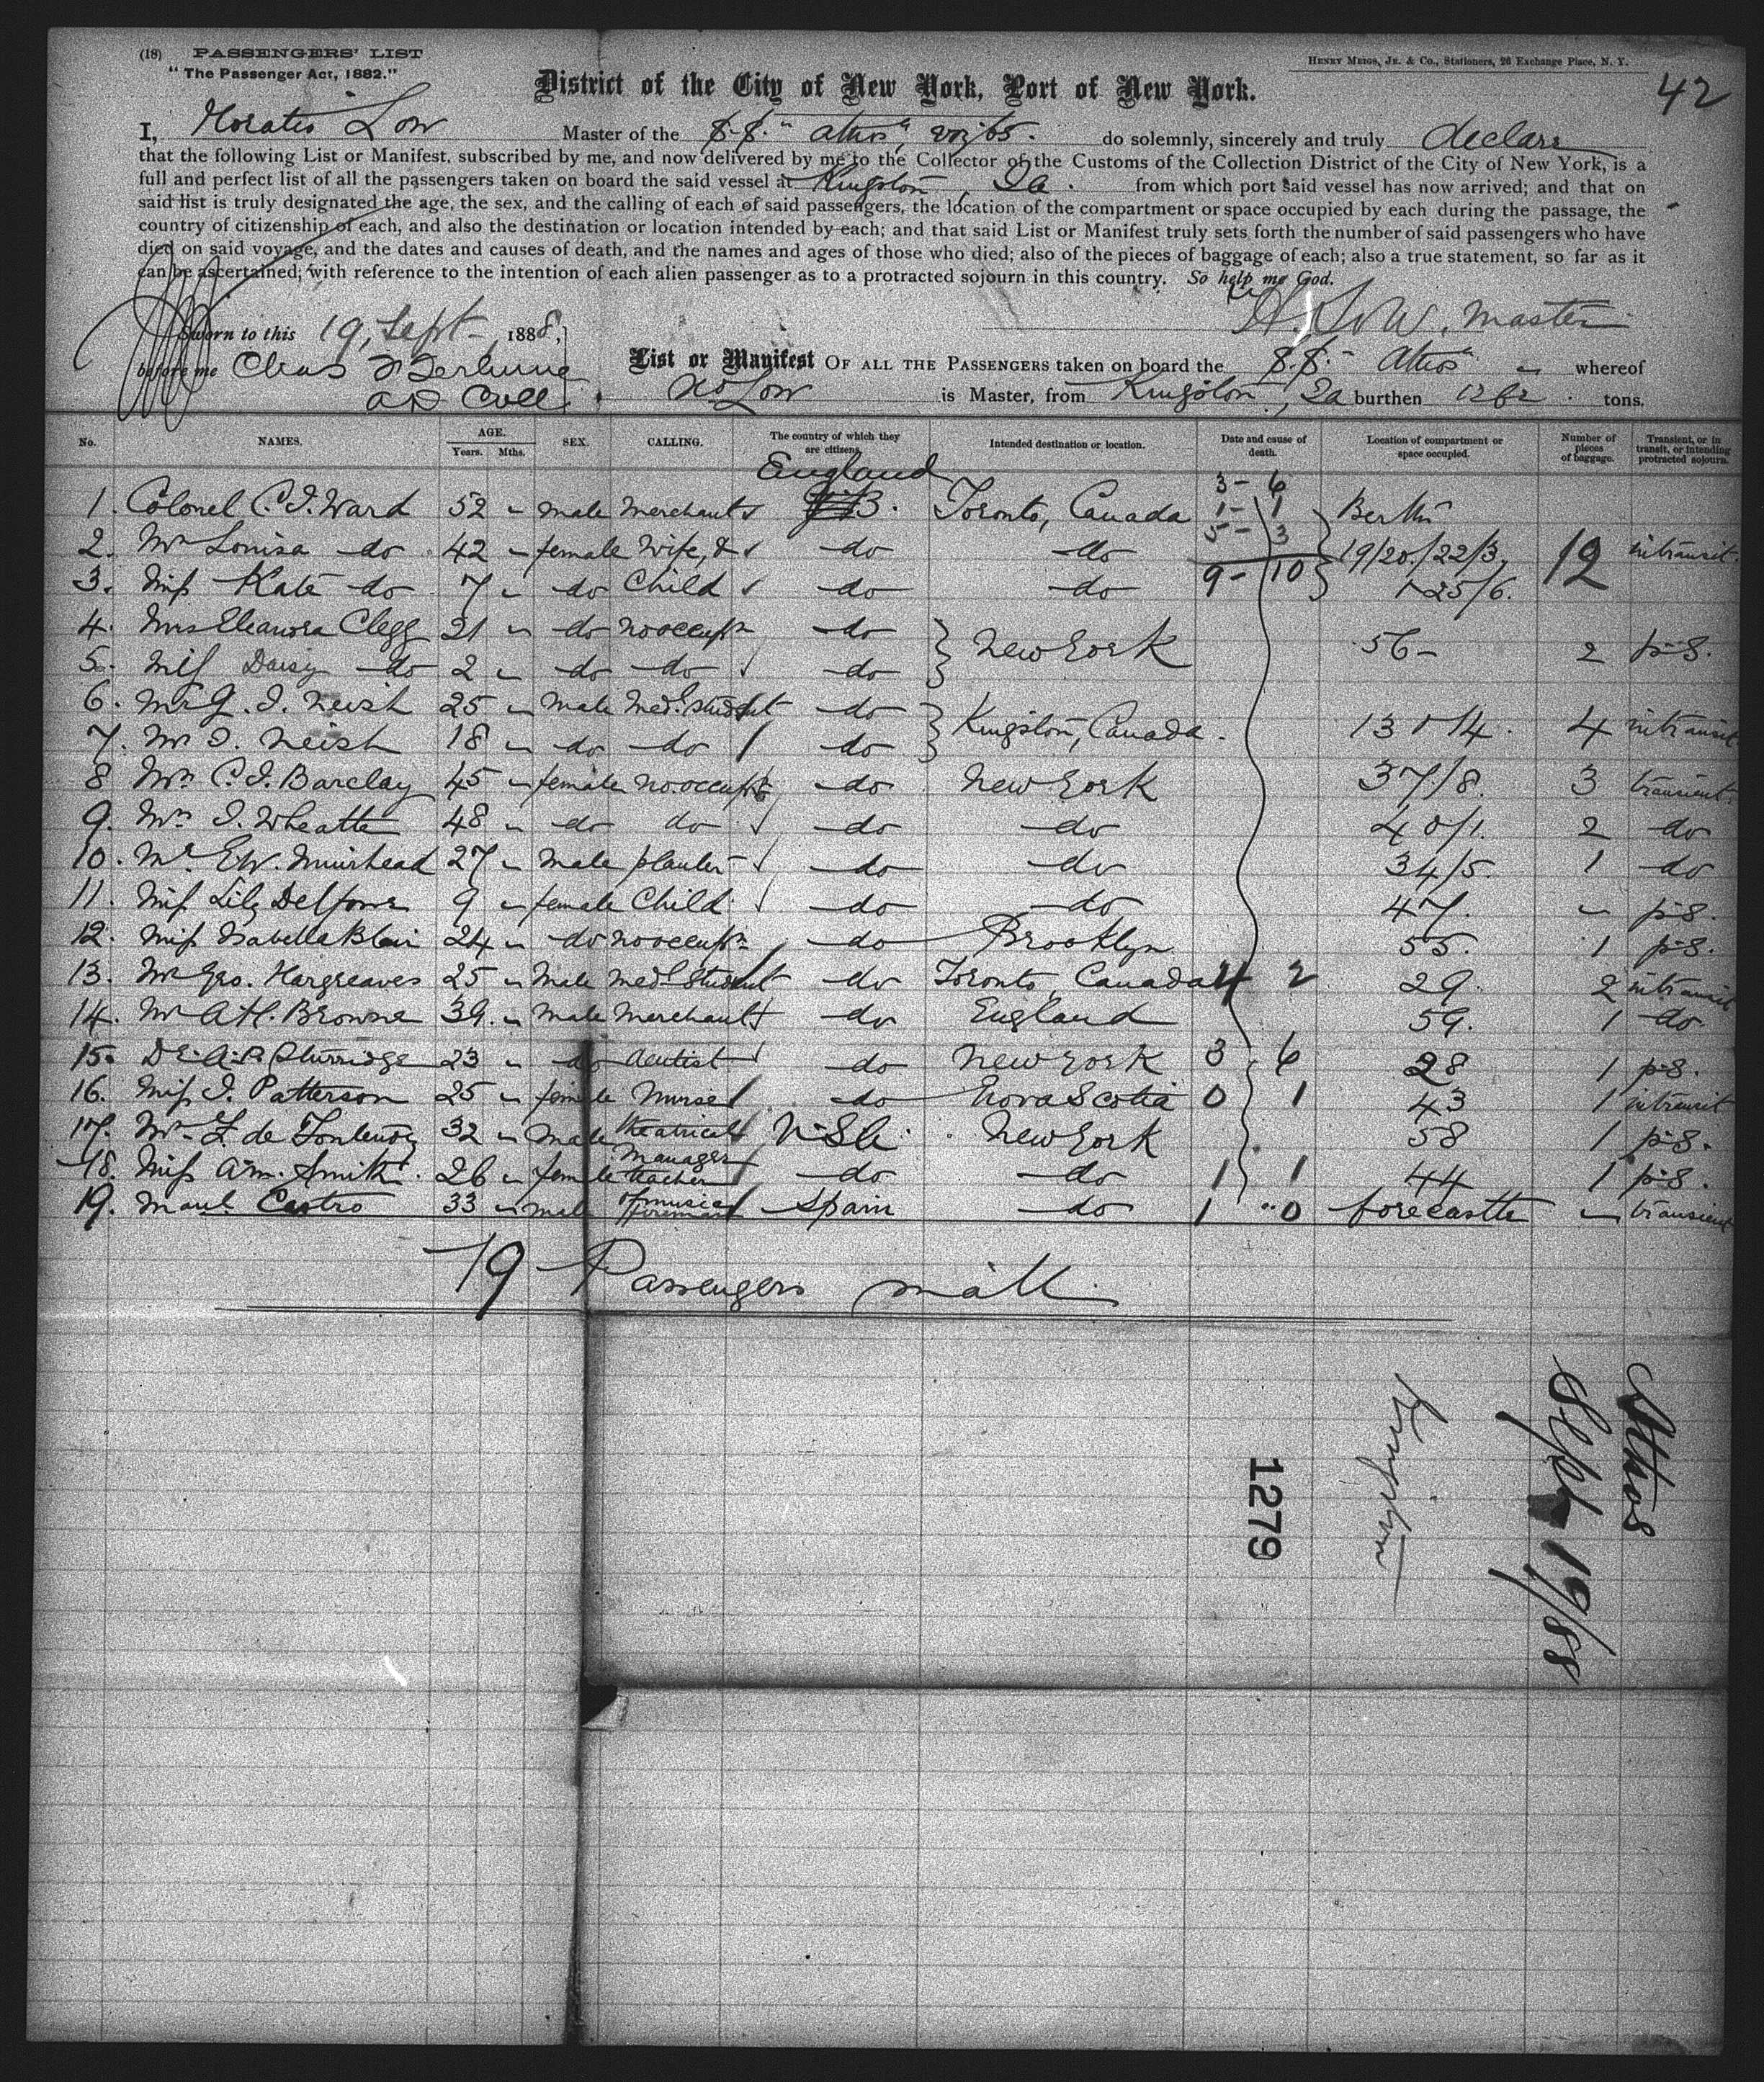 (18) PASSENGERS' LIST
"The Passenger Act, 1882."
HENRY MEIGS, JR. & CO., Stationers, 26 Exchange Place, N. Y.
42
District of the City of New York, Port of New York.
I, Horatio Low Master of the S.S. "Athos", voy 65. do solemnly, sincerely and truly declare
that the following List or Manifest, subscribed by me, and now delivered by me to the Collector of the Customs of the Collection District of the City of New York, is a
full and perfect list of all the passengers taken on board the said vessel at Kingston, Ja. from which port said vessel has now arrived; and that on
said list is truly designated the age, the sex, and the calling of each of said passengers, the location of the compartment or space occupied by each during the passage, the
country of citizenship of each, and also the destination or location intended by each; and that said List or Manifest truly sets forth the number of said passengers who have
died on said voyage, and the dates and causes of death, and the names and ages of those who died; also of the pieces of baggage of each; also a true statement, so far as it
can be ascertained, with reference to the intention of each alien passenger as to a protracted sojourn in this country. So help me God.
H. Low, Master
Sworn to this 19, Sept 1888,
before me Chas
List or Manifest OF ALL THE PASSENGERS taken on board the S.S. "Athos" whereof
Ho Low is Master, from Kingston, Ja burthen 1262 tons.
No. NAMES. AGE. Years. Mths. SEX. CALLING. The country of which they are citizens. Intended destination or location. Date and cause of death. Location of compartment or space occupied. Number of pieces of baggage. Transient, or in transit, or intending protracted sojourn.
England 3- 6
1. Colonel C. J. Ward 52 " male merchant Toronto, Canada 1- 1 Berths
2. Mrs Louisa do 42 " female wife, & do do 5- 3 19/20/22/3, 12 intransit
3. Miss Kate do 7 " do Child do do 9- 10 25/6.
4. Mrs Eleanora Clegg 21 " do no occupn do New York 56 2 p-s.
5. Miss Daisy do 2 " do do do
6. Mr G. J. Neish 25 " male med. student do Kingston, Canada. 13 14. 4 intransit
7. Mr J. Neish 18 " do do do
8 Mrs C. J. Barclay 45 " female no occupn do New York 37/8. 3 transient
9. Mrs J. Wheatle 48 " do do do do 40/1. 2 do
10. Mr E.W. Muirhead 27 " male planter do do 34/5. 1 do
11. Miss Lily 9 " female Child do do 47. " p-s.
12. Miss Isabella Blair 24 " do no occupn do Brooklyn 55. 1 p-s.
13. Mr Geo. Hargreaves 25 " male medl student do Toronto, Canada 4 2 29. 2 intransit
14. Mr A H. Browne 39. " male merchant do England 59. 1 do
15. Dr. A. B. Sturridge 23 " do dentist do New York 3 6 28 1 p-s.
16. Miss J. Patterson 25 " female Nurse do Nova Scotia 0 1 43 1 intransit
17. Mr. F. de 32 " male theatrical manager New York 58 1 p-s.
18. Miss A.M. Smith 26 " female teacher of music do do 1 1 44 1 p-s.
19. Manl. Castro 33 " male fireman Spain do 1 0 forecastle " transient
19 Passengers in all
Athos
Sept 19/88
1279